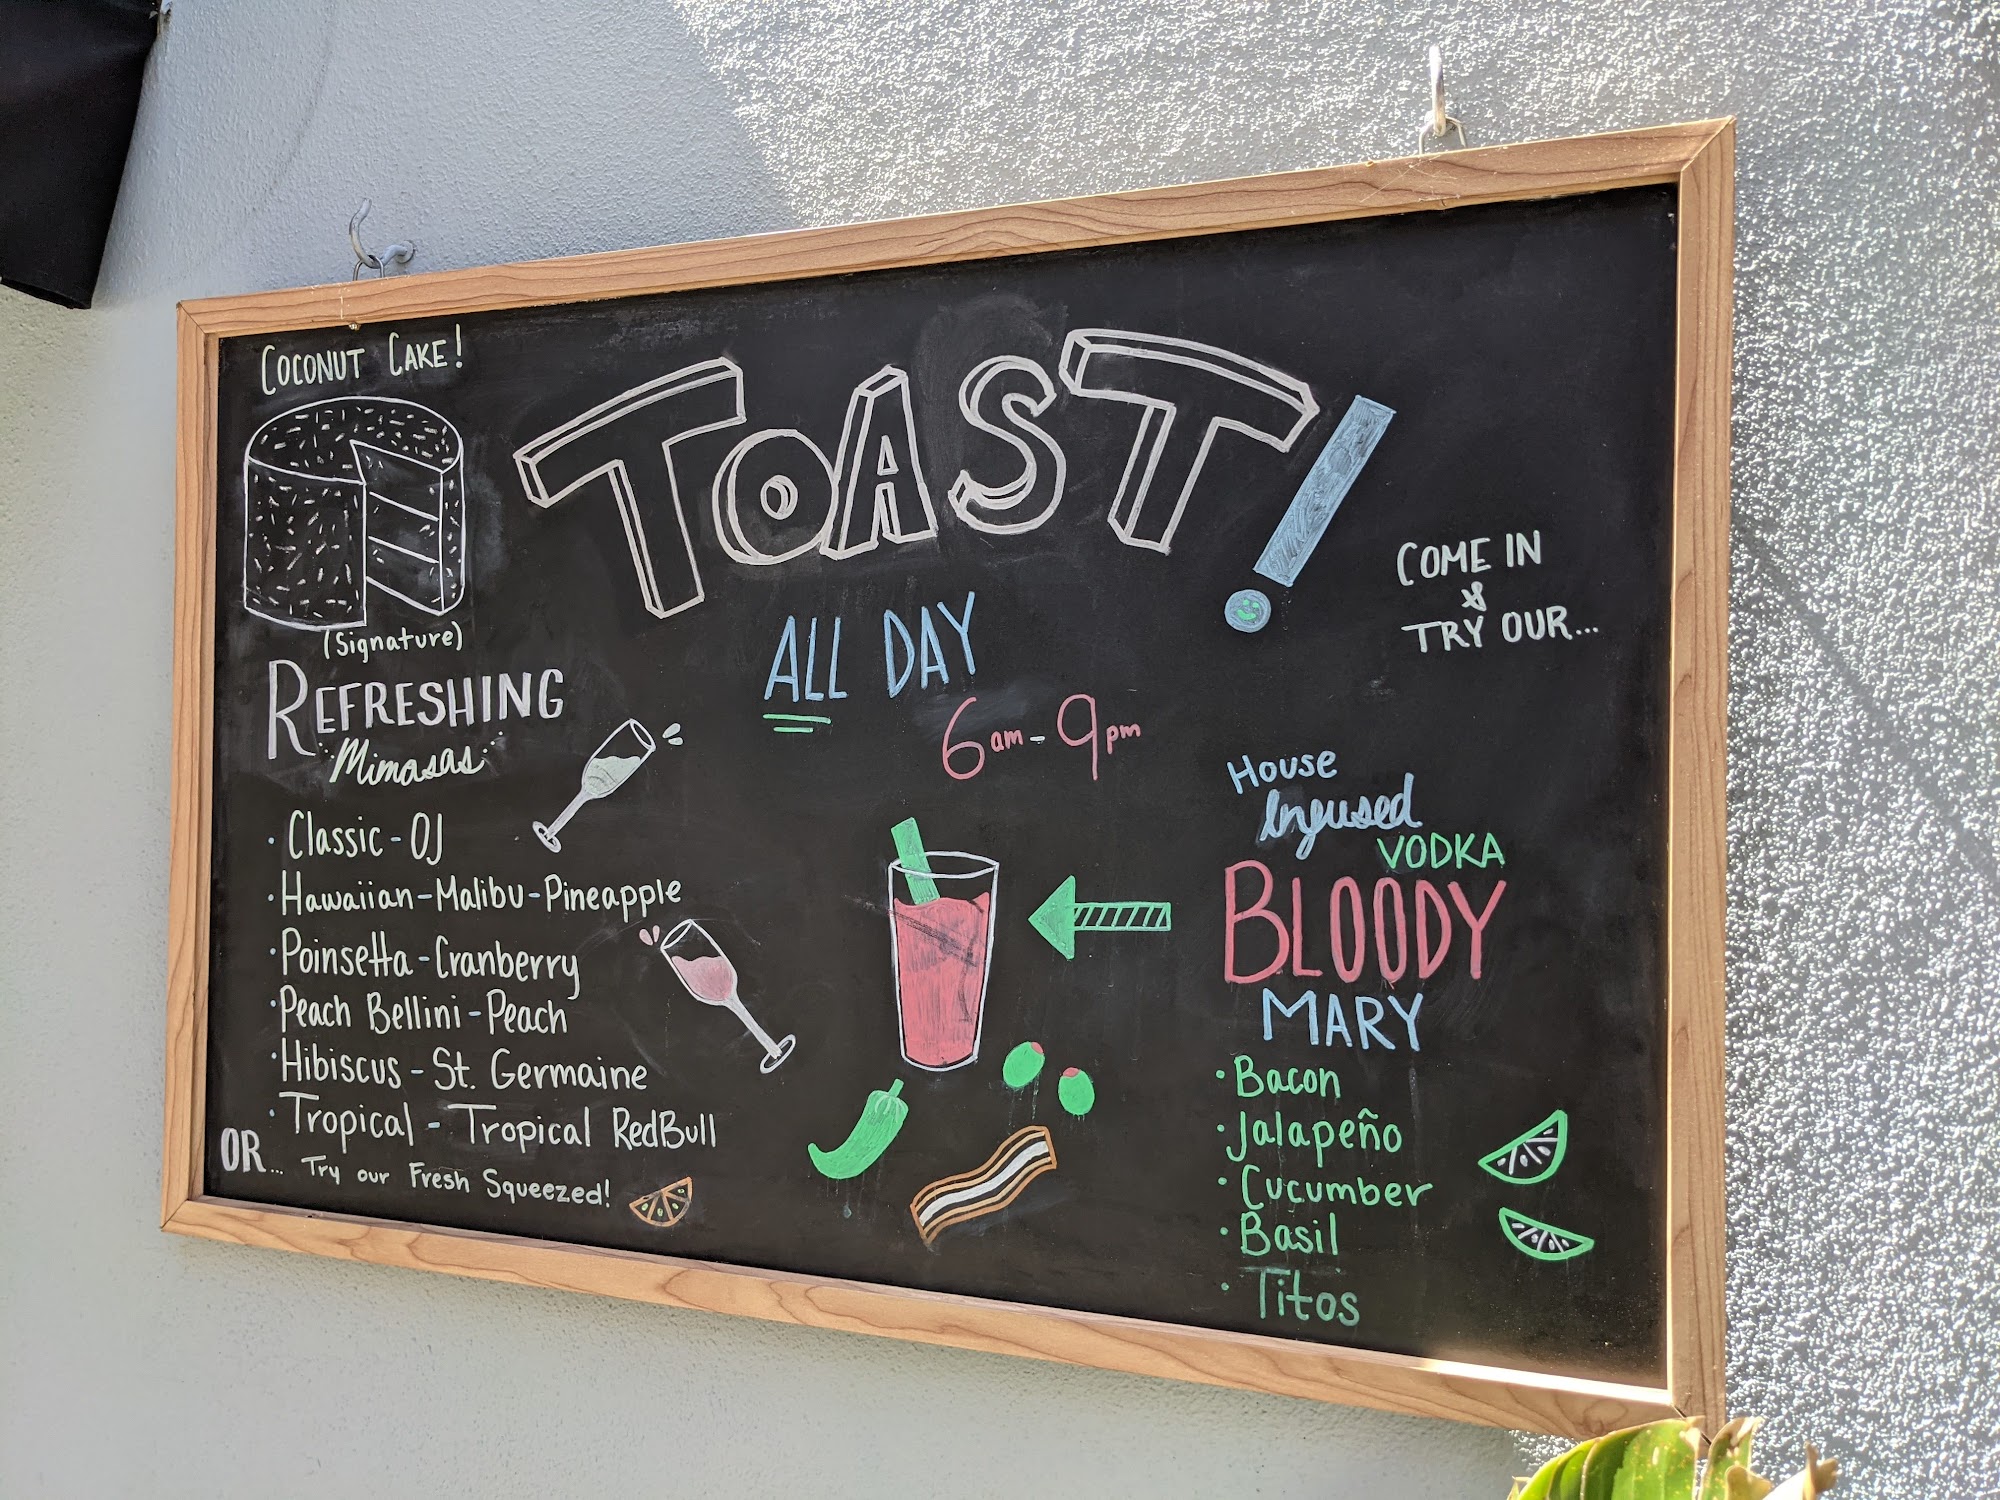 COCONUT CAKE!
(Signature)
TOAST!
ALL DAY
6am-9pm
COME IN
&
TRY OUR...
REFRESHING
Mimosas
· Classic - OJ
· Hawaiian - Malibu - Pineapple
· Poinsetta - Cranberry
· Peach Bellini - Peach
· Hibiscus - St. Germaine
· Tropical - Tropical RedBull
OR... Try our Fresh Squeezed!
House
Infused
VODKA
BLOODY
MARY
· Bacon
· Jalapeño
· Cucumber
· Basil
· Titos